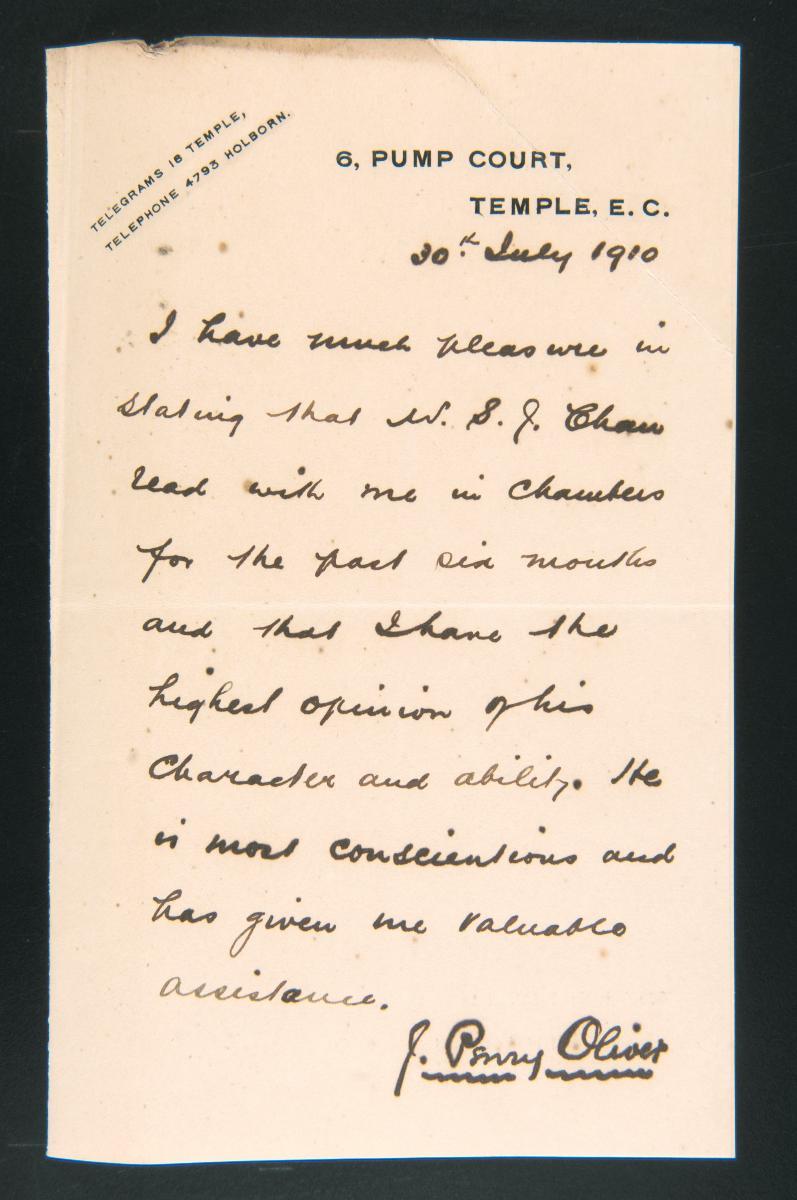 TELEGRAMS 16 TEMPLE,
TELEPHONE 4793 HOLBORN.
6, PUMP COURT,
TEMPLE, E. C.
30th July 1910
I have much pleasure in
stating that W. S. J. Chan
read with me in Chambers
for the past six months
and that I have the
highest opinion of his
Character and ability. He
is most conscientious and
has given me valuable
assistance.
J. Perry Oliver